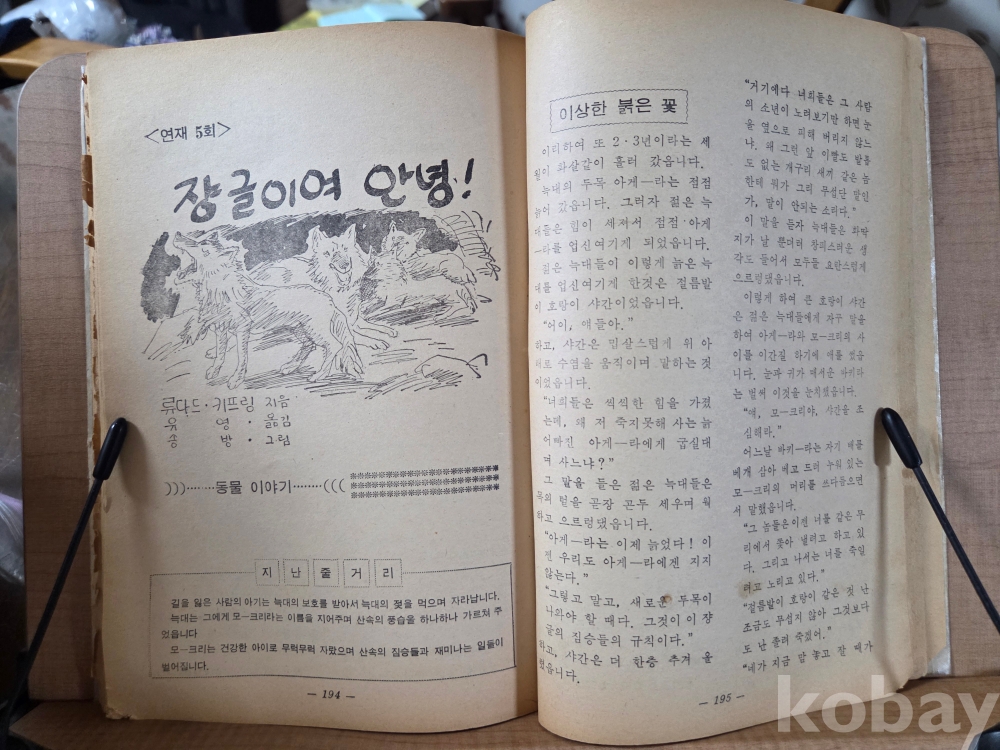 <연재 5회>
쟝글이여 안녕!
류다드·키프링 지음
유 영·옮김
송 방·그림
)))……동물 이야기……(((
지난줄거리
길을 잃은 사람의 아기는 늑대의 보호를 받아서 늑대의 젖을 먹으며 자라납니다.
늑대는 그에게 모—크리라는 이름을 지어주며 산속의 풍습을 하나하나 가르쳐 주
었읍니다
모—크리는 건강한 아이로 무럭무럭 자랐으며 산속의 짐승들과 재미나는 일들이
벌어집니다.
— 194 —
이상한 붉은 꽃
이리하여 또 2·3년이라는 세
월이 화살같이 흘러 갔읍니다.
늑대의 두목 아게—라는 점점
늙어 갔읍니다. 그러자 젊은 늑
대들은 힘이 세져서 점점 아게
—라를 업신여기게 되었읍니다.
젊은 늑대들이 이렇게 늙은 늑
대를 업신여기게 한것은 절름발
이 호랑이 샤간이었읍니다.
"어이, 얘들아."
하고, 샤간은 밉살스럽게 위 아
래로 수염을 움직이며 말하는 것
이었읍니다.
"너희들은 씩씩한 힘을 가졌
는데, 왜 저 죽지못해 사는 늙
어빠진 아게—라에게 굽실대
며 사느냐?"
그 말을 들은 젊은 늑대들은
목의 털을 곧장 곤두 세우며 워
하고 으르렁댔읍니다.
"아게—라는 이제 늙었다! 이
젠 우리도 아게—라에겐 지지
않는다."
"그렇고 말고, 새로운 두목이
나와야 할 때다. 그것이 이 쟝
글의 짐승들의 규칙이다."
하고, 샤간은 더 한층 추겨 올
렸읍니다.
"거기에다 너희들은 그 사람
의 소년이 노려보기만 하면 눈
을 옆으로 피해 버리지 않느
냐. 왜 그런 앞 이빨도 발톱
도 없는 개구리 새끼 같은 놈
한테 뭐가 그리 무섭단 말인
가, 말이 안되는 소리다."
이 말을 듣자 늑대들은 화딱
지가 날 뿐더러 창피스러운 생
각도 들어서 모두들 요란스럽게
으르렁댔읍니다.
이렇게 하여 큰 호랑이 샤간
은 젊은 늑대들에게 자꾸 말을
하여 아게—라와 모—크리의 사
이를 이간질 하기에 애를 썼읍
니다. 눈과 귀가 매서운 바키라
는 벌써 이것을 눈치챘읍니다.
"얘, 모—크리야, 샤간을 조
심해라."
어느날 바키—라는 자기 배를
베개 삼아 베고 드러 누워 있는
모—크리의 머리를 쓰다듬으면
서 말했읍니다.
"그 놈들은이젠 너를 같은 무
리에서 쫓아 낼려고 하고 있
다. 그리고 나서는 너를 죽일
려고 노리고 있다."
"절름발이 호랑이 같은 것 난
조금도 무섭지 않아 그것보다
도 난 졸려 죽겠어."
"네가 지금 맘 놓고 잘 때가
— 195 —
kobay